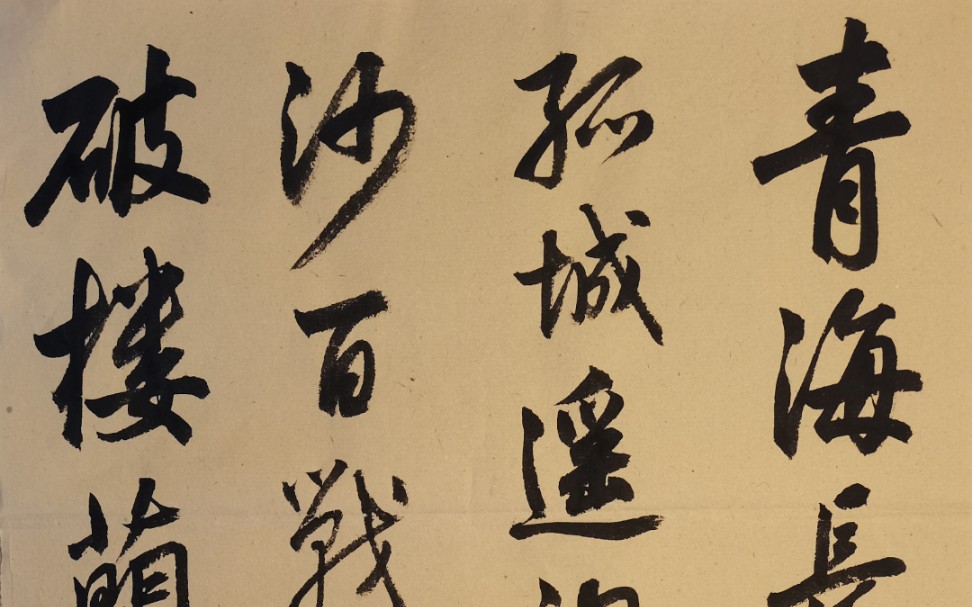 青海長
孤城遥
沙百戰
破樓蘭